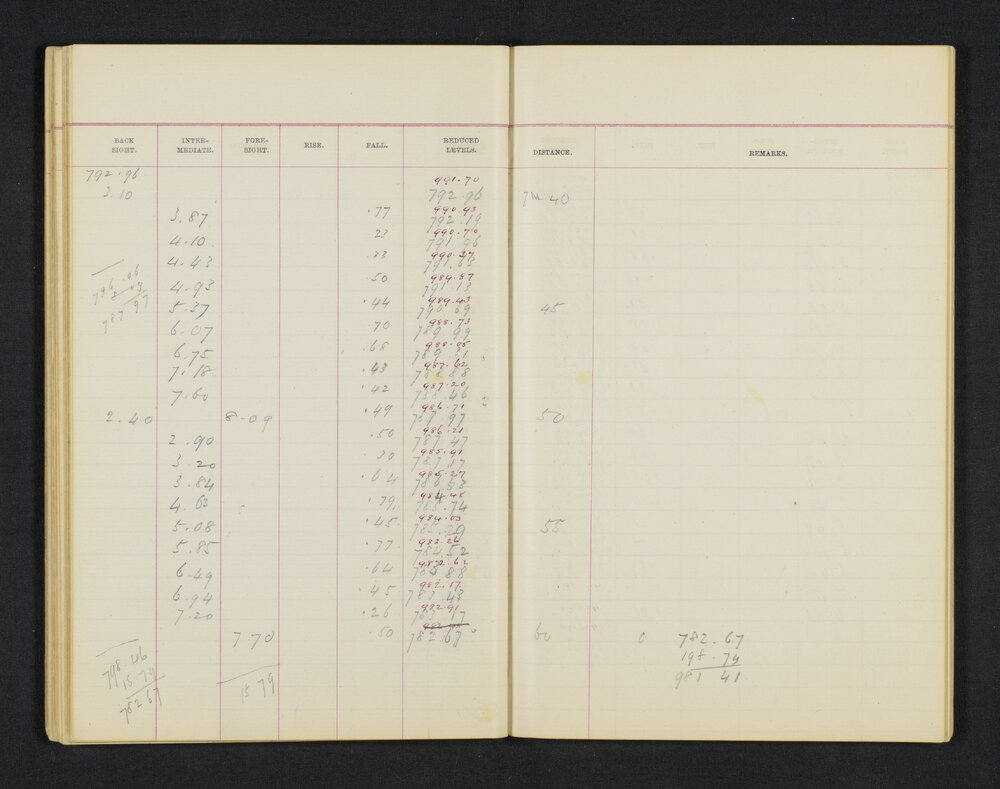 BACK SIGHT. INTER-MEDIATE. FORE-SIGHT. RISE. FALL. REDUCED LEVELS. DISTANCE. REMARKS.
792.96 991.70
3.10 792.96 7M 40
3.87 .77 990.93
792.19
4.10 23 990.70
791 96
4.43 .33 990.37
4.93 50 989.87
796.06
8 09
787 97
5.37 .44 989.43 45
790 69
6.07 .70 988.73
789.99
6.75 .68 988.05
789.31
7.18 .43 987.62
788 88
7.60 .42 987.20
788.46
2.40 8.09 .49 986.71 50
787 97
2.90 .50 986.21
787 47
3.20 30 985.91
787 17
3.84 .64 985.27
786 53
4.63 .79 984.48
785.74
5.08 .45 984.03 55
785.29
5.85 .77 983.26
784.52
6.49 .64 982.62
6.94 .45 982.17
783 43
7.20 .26
783 17
7 70 .50 782.67 60 0 782.67
198.74
981 41
798.46
15 79
782 67
15 79